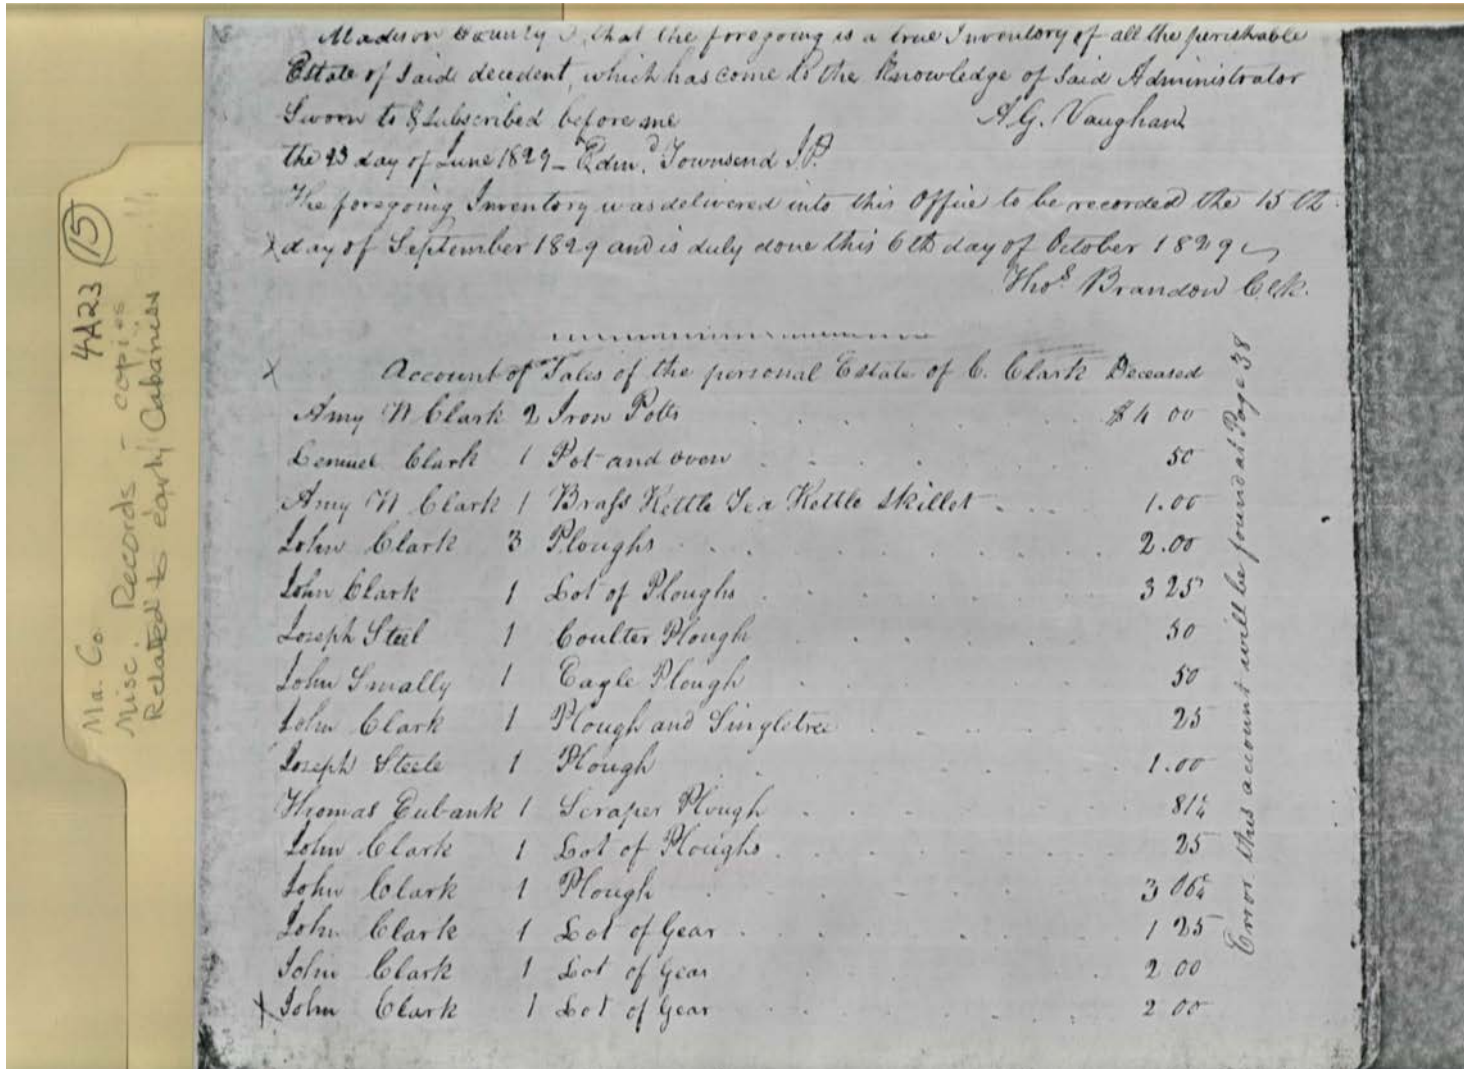 Madison County), that the foregoing is a true Inventory of all the perishable
Estate of Said decedent, which has come to the Knowledge of Said Administrator
Sworn to & Subscribed before me A.G. Vaughan
the 23 day of June 1829 - Edmd. Townsend J.P.
The foregoing Inventory was delivered into this Office to be recorded the 15th
x day of September 1829 and is duly done this 6th day of October 1829
Thos. Brandon Clk.
x Account of Sales of the personal Estate of C. Clark Deceased
Amy N Clark 2 Iron Potts $4 00
Lemuel Clark 1 Pot and oven 50
Amy N Clark 1 Brass Kettle Tea Kettle Skillet 1.00
John Clark 3 Ploughs 2.00
John Clark 1 Lot of Ploughs 3 25
Joseph Steel 1 Coulter Plough 50
John Smally 1 Eagle Plough 50
John Clark 1 Plough and Singletree 25
Joseph Steele 1 Plough 1.00
Thomas Eubank 1 Scraper Plough 81¼
John Clark 1 Lot of Ploughs 25
John Clark 1 Plough 3 06¼
John Clark 1 Lot of Gear 1 25
John Clark 1 Lot of Gear 2 00
x John Clark 1 Lot of Gear 2 00
Error this account will be found at Page 38
4A23 (15)
Ma. Co.
Misc. Records - copies
Related to early Cabaniss